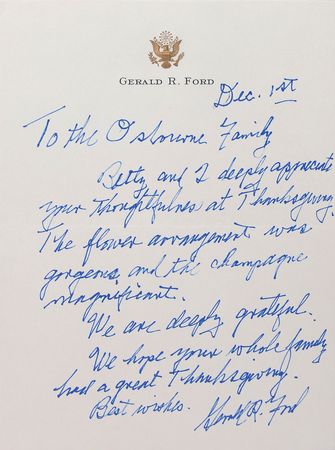 GERALD R. FORD
Dec. 1st
To the Osbourne Family
Betty and I deeply appreciate
your thoughtfulness at Thanksgiving.
The flower arrangement was
gorgeous and the champagne
magnificent.
We are deeply grateful.
We hope your whole family
had a great Thanksgiving.
Best wishes.
Gerald R. Ford